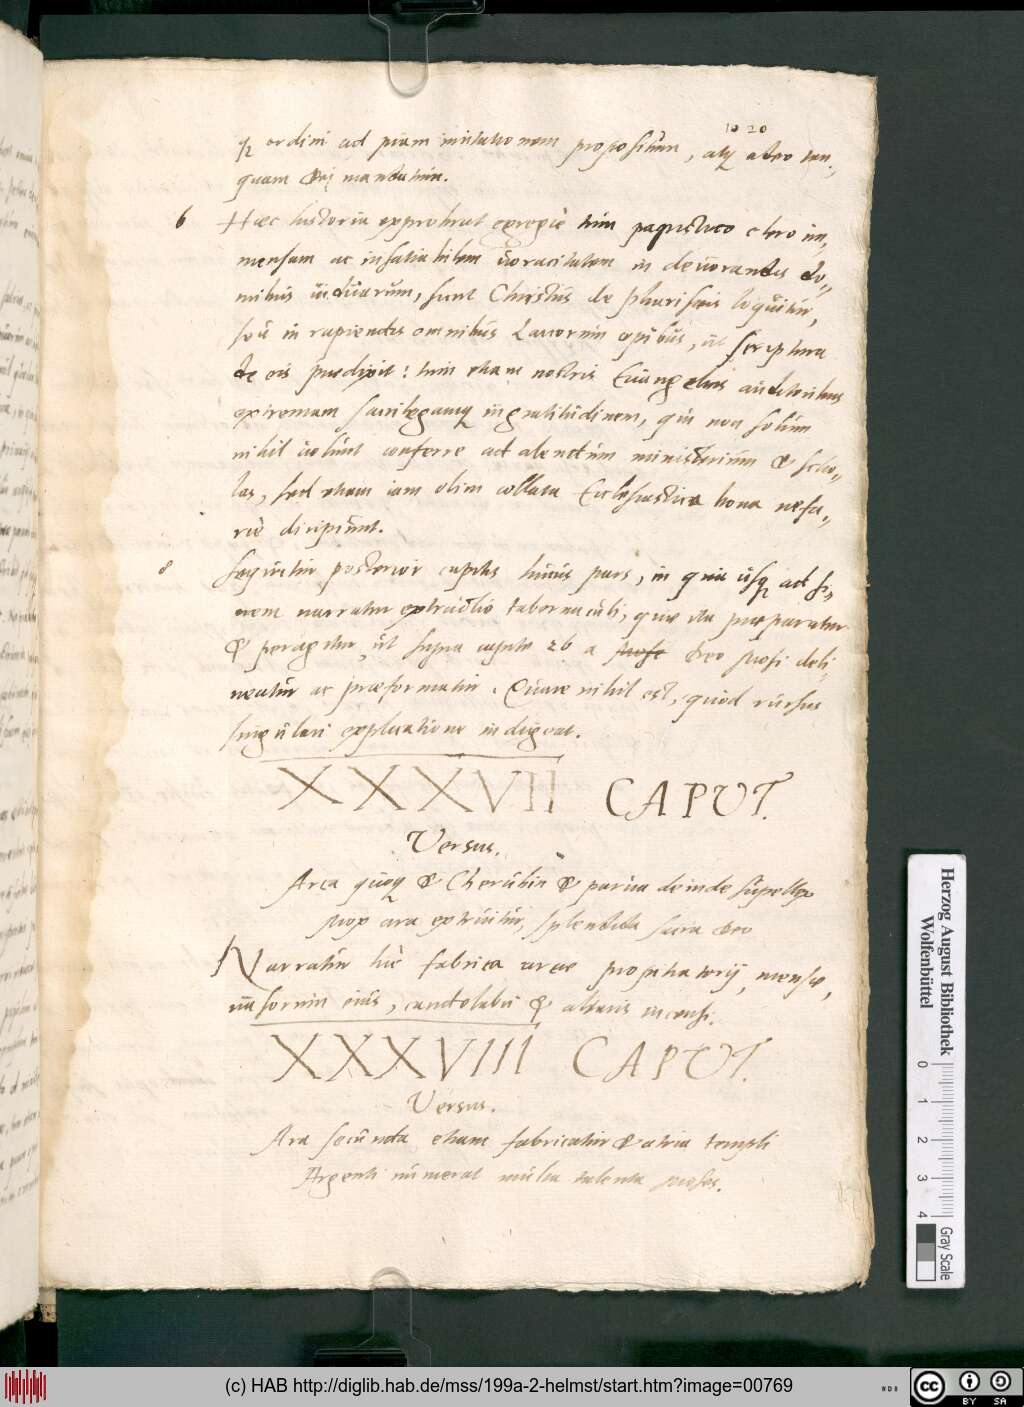 1020
q; ordini ad piam imitationem propositum, atq; adeo tan„
quam Dei mandatum.
6 Hæc historia exprobrat egregiè tum papistico clero im„
mensam ac insatiabilem voracitatem in devorandis do„
mibus viduarum, sicut Christus de pharisæis loquitur,
seu in rapiendis omnibus Laicorum opibus, ut scriptura
de eis prædixit: tum etiam nostris Euangelicis auditoribus
extremam sacrilegamq; ingratitudinem, qui non solum
nihil volunt conferre ad alendum ministerium & scho„
las, sed etiam iam olim collata Ecclesiastica bona nefa„
riè diripiunt.
8 Sequitur posterior capitis huius pars, in qua usq; ad fi„
nem narratur extructio tabernaculi, quæ ita præparatur
& peragitur, ut supra capite 26 a Deo Mosi deli„
neatur ac præformatur. Quare nihil est, quod rursus
singulari explicatione indigeat.
XXXVII CAPUT.
Versus.
Arca quoq; & Cherubin & parva deinde supellex
Mox ara extruitur, splendida sacra Deo
Narratur hic fabrica arcæ propitiatorij, mensæ,
vasorum eius, candelabri & altaris incensi.
XXXVIII CAPUT.
Versus.
Ara secunda etiam fabricatur & atria templi
Argenti numerat multa talenta Moses.
Herzog August Bibliothek
Wolfenbüttel
0 1 2 3 4
Gray Scale
(c) HAB http://diglib.hab.de/mss/199a-2-helmst/start.htm?image=00769
cc BY SA